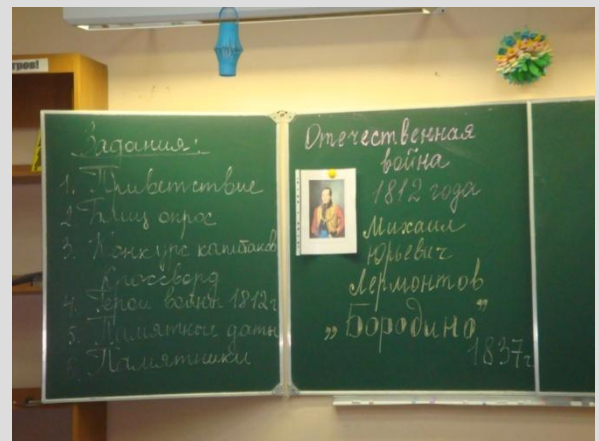 Задания:
1. Приветствие
2 Блиц опрос
3. Конкурс капитанов
Кроссворд
4. Герои войны 1812г
5. Памятные даты
6. Памятники
Отечественная
война
1812 года
Михаил
Юрьевич
Лермонтов
„Бородино”
1837г